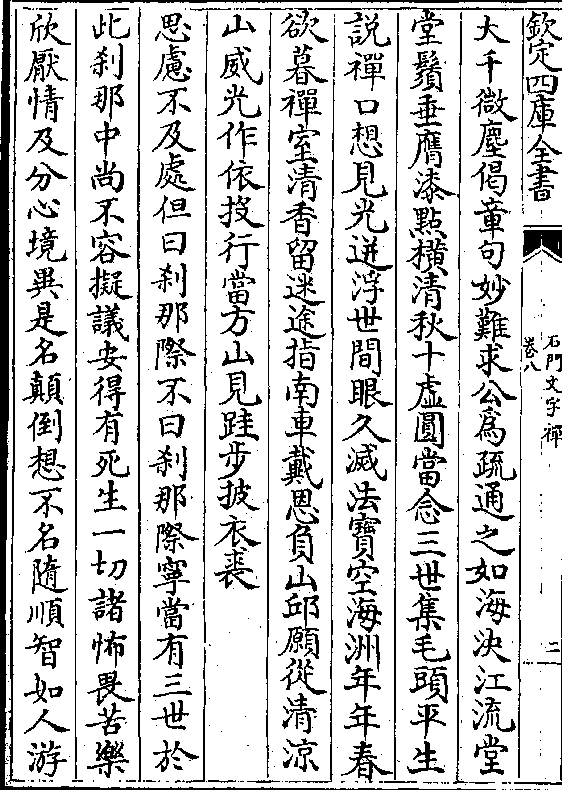 欽定四庫全書
石門文字禪
卷八
二
大千微塵偈章句妙難求公為疏通之如海決江流堂
堂鬚垂膺漆點橫清秋十虛圓當念三世集毛頭平生
說禪口想見光迸浮世間眼久滅法寶空海洲年年春
欲暮禪室清香留迷途指南車戴恩負山邱願從清涼
山威光作依投行當方山見跬步披衣裘
思慮不及處但曰刹那際不曰刹那際寧當有三世於
此刹那中尚不容擬議安得有死生一切諸怖畏苦樂
欣厭情及分心境異是名顛倒想不名隨順智如人游